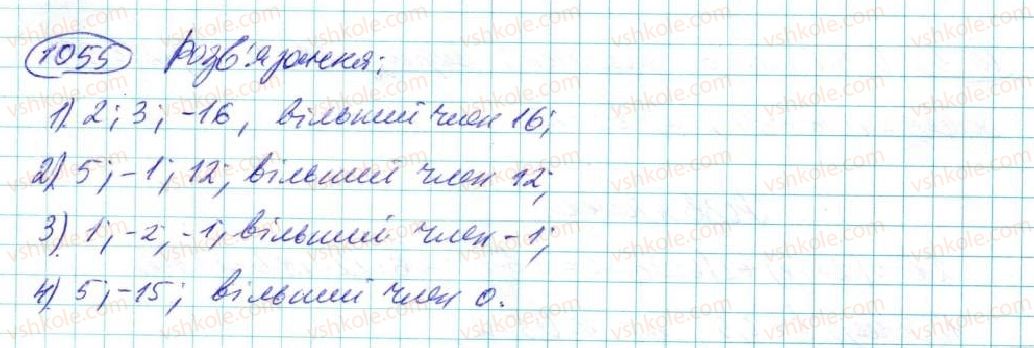 1055 Розв'язання:
1) 2; 3; -16, вільний член 16;
2) 5; -1; 12; вільний член 12;
3) 1; -2; -1; вільний член -1;
4) 5; -15; вільний член 0.